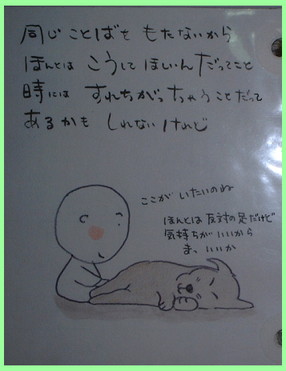 同じ ことばを もたないから
ほんとは こうして ほしいんだってこと
時には すれちがっちゃうことだって
あるかも しれないけれど
ここが いたいのね
ほんとは 反対の足だけど
気持ちが いいから
ま、いいか